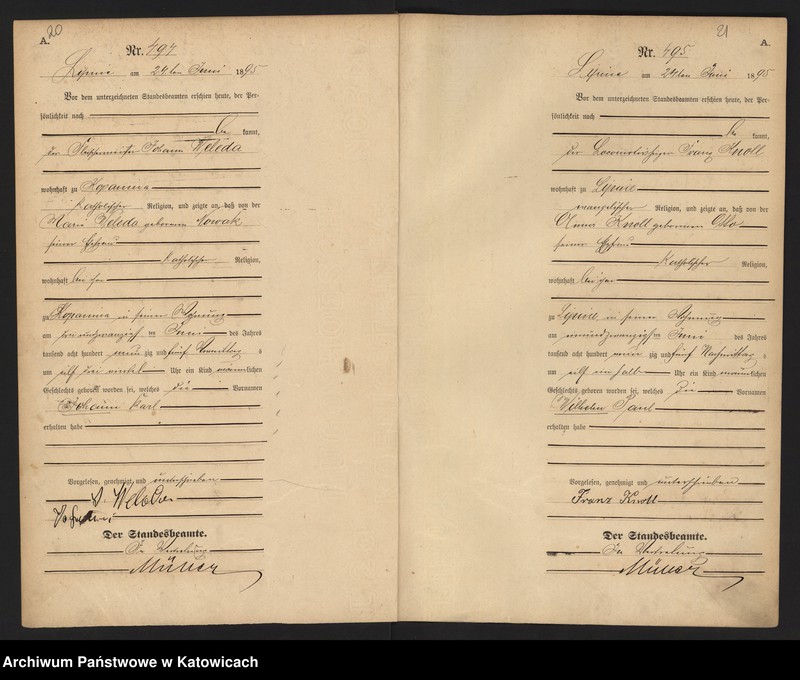 20
A.
Nr. 494
Lipine am 24ten Juni 1895
Vor dem unterzeichneten Standesbeamten erschien heute, der Per-
sönlichkeit nach
be kannt,
der Johann Weleda
wohnhaft zu Kopanina
katholischer Religion, und zeigte an, daß von der
Marie Weleda geborenen Nowak
seiner Ehefrau
katholischer Religion,
wohnhaft bei ihm
zu Kopanina in seiner Wohnung
am ten Juni des Jahres
tausend acht hundert neun zig und fünf Vormittag s
um elf Uhr ein Kind männlichen
Geschlechts geboren worden sei, welches die Vornamen
Johann Karl
erhalten habe
Vorgelesen, genehmigt und unterschrieben
Der Standesbeamte.
In Vertretung
Müller
21
A.
Nr. 495
Lipine am 24ten Juni 1895
Vor dem unterzeichneten Standesbeamten erschien heute, der Per-
sönlichkeit nach
be kannt,
der Locomotivheizer Franz Knoll
wohnhaft zu Lipine
evangelischer Religion, und zeigte an, daß von der
Anna Knoll geborenen Otto
seiner Ehefrau
katholischer Religion,
wohnhaft bei ihm
zu Lipine in seiner Wohnung
am ten Juni des Jahres
tausend acht hundert neun zig und fünf Nachmittag s
um elf ein halb Uhr ein Kind männlichen
Geschlechts geboren worden sei, welches die Vornamen
Wilhelm Paul
erhalten habe
Vorgelesen, genehmigt und unterschrieben
Franz Knoll
Der Standesbeamte.
In Vertretung
Müller
Archiwum Państwowe w Katowicach